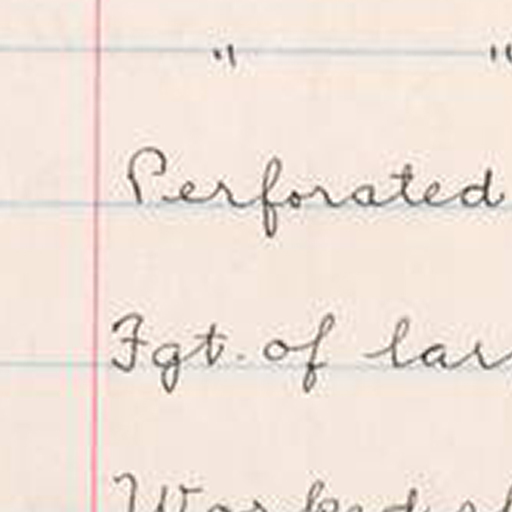 " "
Perforated
Fgt. of lar
Worked